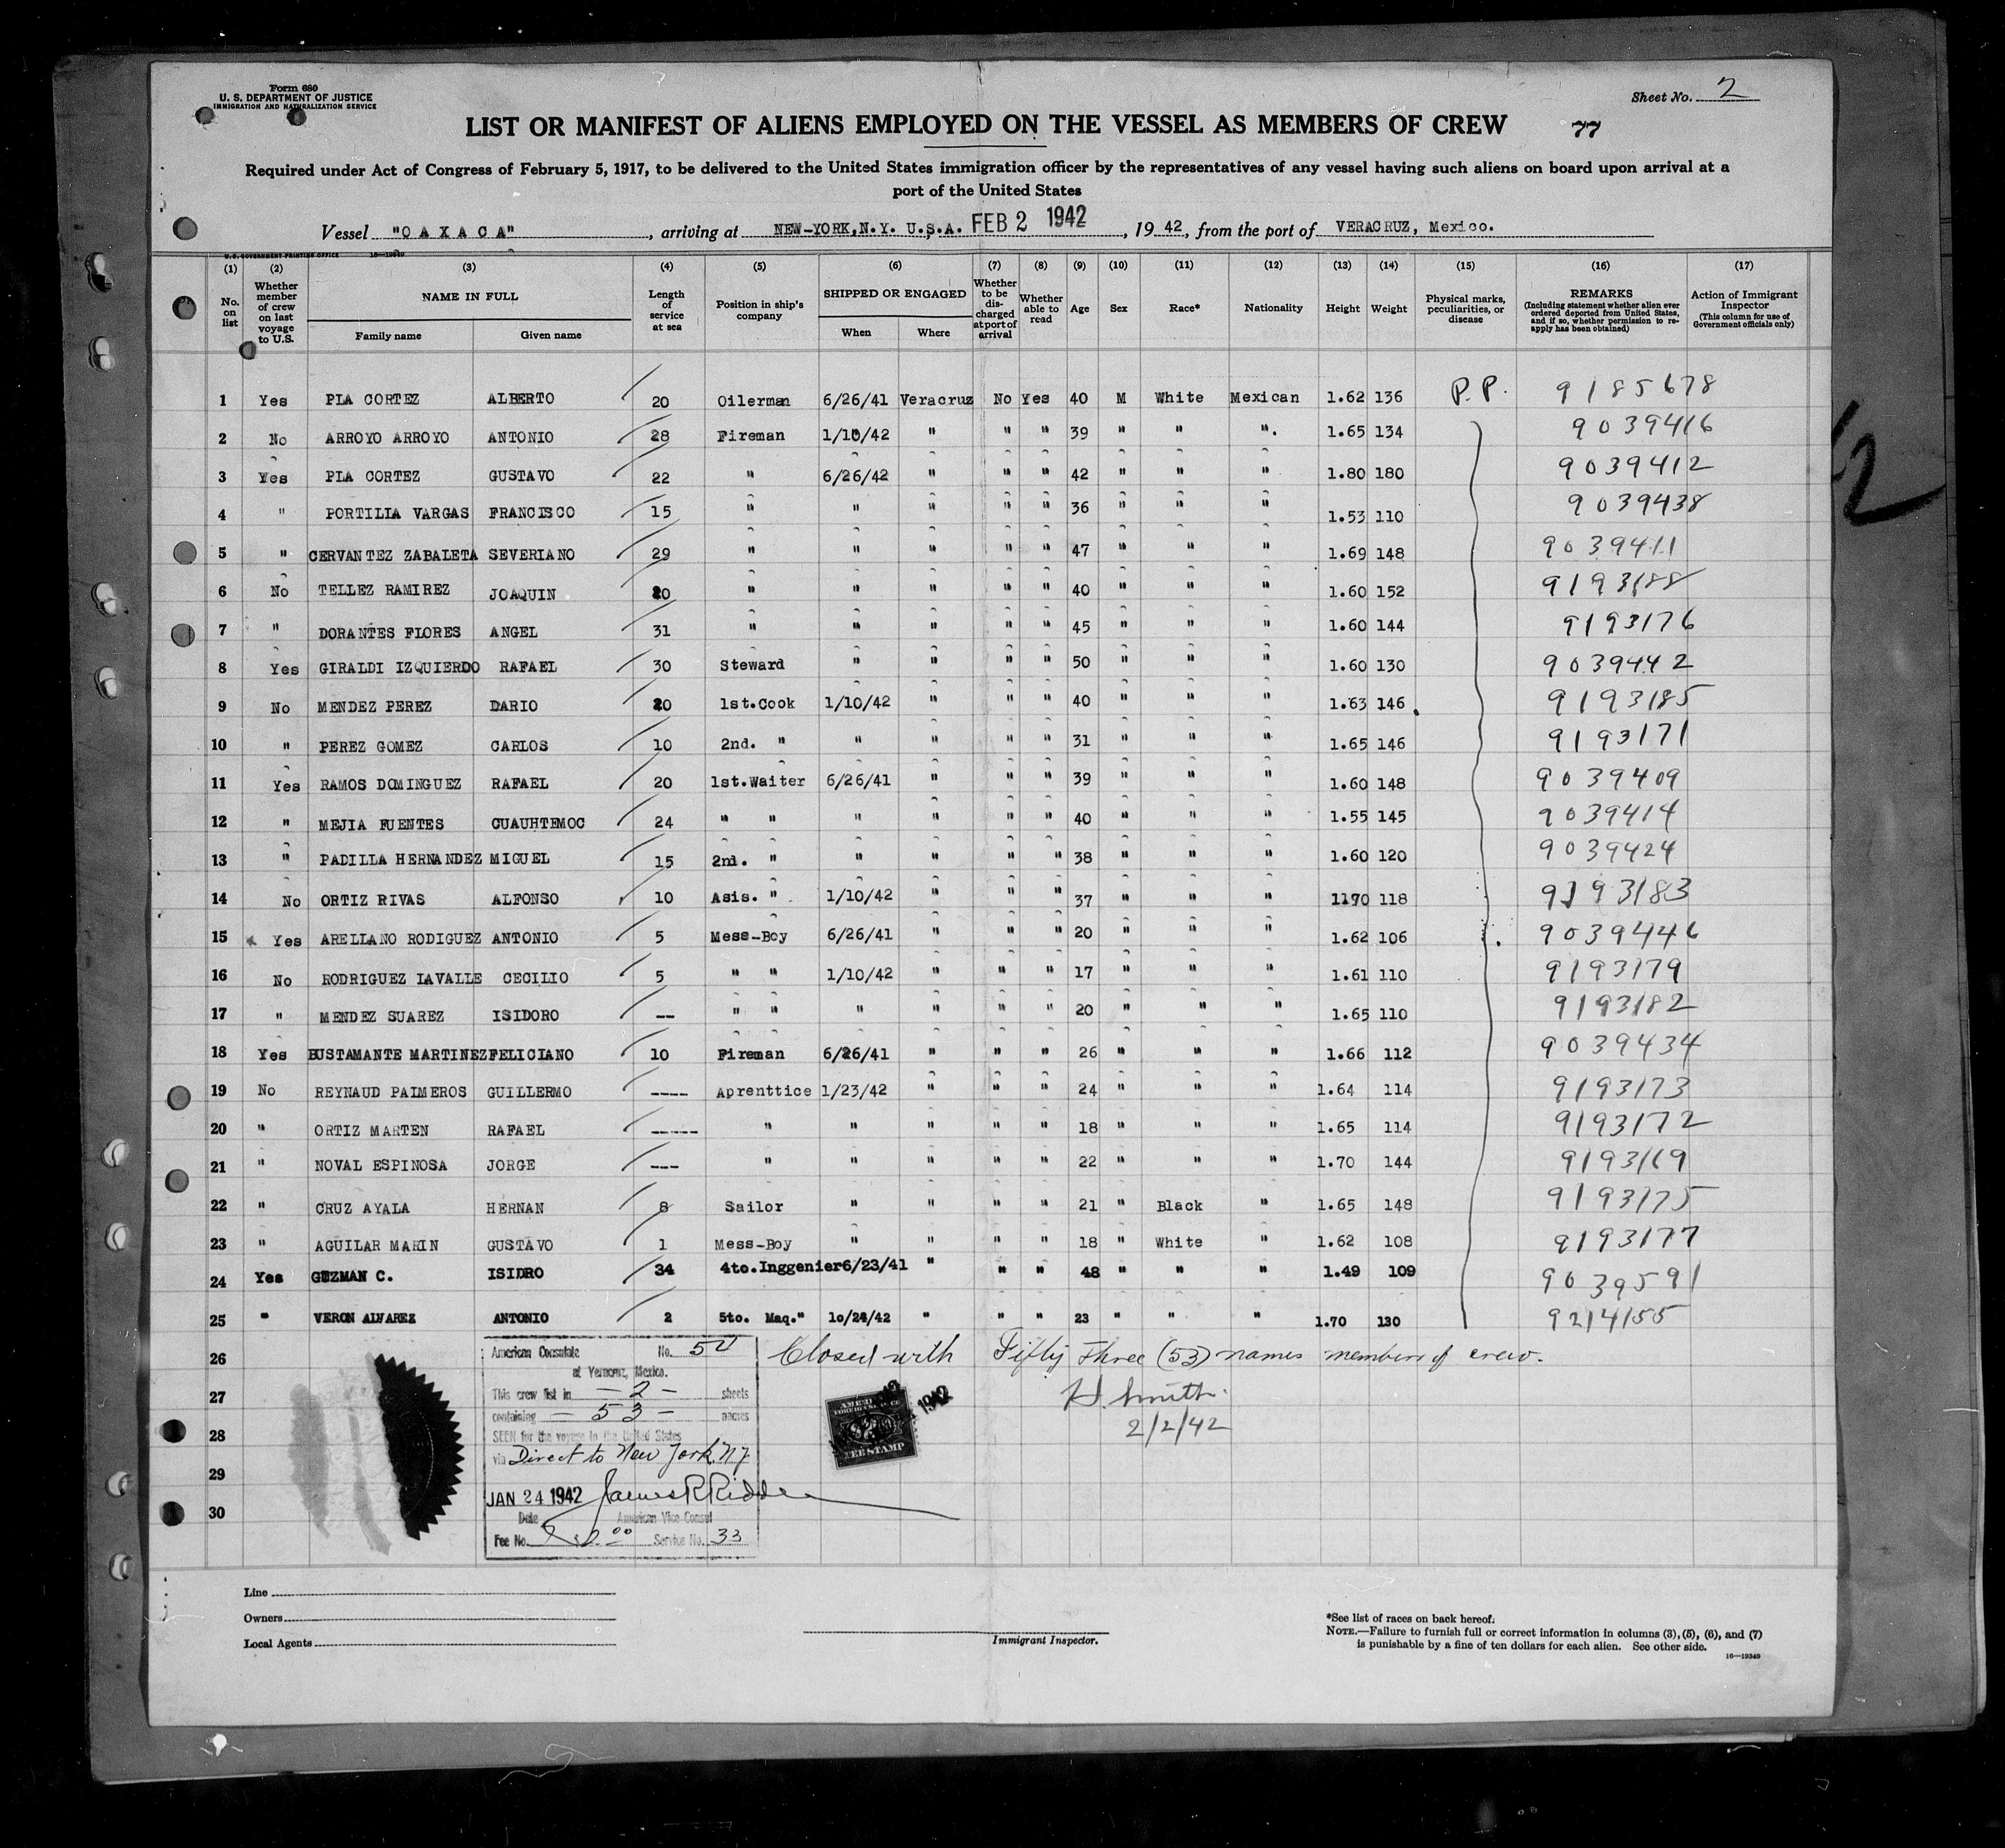 Form 680
U. S. DEPARTMENT OF JUSTICE
IMMIGRATION AND NATURALIZATION SERVICE
Sheet No. 2
LIST OR MANIFEST OF ALIENS EMPLOYED ON THE VESSEL AS MEMBERS OF CREW 77
Required under Act of Congress of February 5, 1917, to be delivered to the United States immigration officer by the representatives of any vessel having such aliens on board upon arrival at a
port of the United States
Vessel "OAXACA", arriving at NEW-YORK,N.Y. U.S.A. FEB 2 1942, 19 42, from the port of VERACRUZ, Mexico.
U.S. GOVERNMENT PRINTING OFFICE 16—19349
(1) (2) (3) (4) (5) (6) (7) (8) (9) (10) (11) (12) (13) (14) (15) (16) (17)
No. on list
Whether member of crew on last voyage to U.S.
NAME IN FULL
Family name Given name
Length of service at sea
Position in ship's company
SHIPPED OR ENGAGED
When Where
Whether to be discharged at port of arrival
Whether able to read
Age Sex Race* Nationality Height Weight
Physical marks, peculiarities, or disease
REMARKS
(Including statement whether alien ever ordered deported from United States, and if so, whether permission to re-apply has been obtained)
Action of Immigrant Inspector
(This column for use of Government officials only)
1 Yes PLA CORTEZ ALBERTO 20 Oilerman 6/26/41 Veracruz No Yes 40 M White Mexican 1.62 136 P.P. 9185678
2 No ARROYO ARROYO ANTONIO 28 Fireman 1/10/42 " " " 39 " " ". 1.65 134 9039416
3 Yes PLA CORTEZ GUSTAVO 22 " 6/26/42 " " " 42 " " " 1.80 180 9039412
4 " PORTILLA VARGAS FRANCISCO 15 " " " " " 36 " " " 1.53 110 9039438
5 " CERVANTEZ ZABALETA SEVERIANO 29 " " " " " 47 " " " 1.69 148 9039411
6 No TELLEZ RAMIREZ JOAQUIN 20 " " " " " 40 " " " 1.60 152 9193188
7 " DORANTES FLORES ANGEL 31 " " " " " 45 " " " 1.60 144 9193176
8 Yes GIRALDI IZQUIERDO RAFAEL 30 Steward " " " " 50 " " " 1.60 130 9039442
9 No MENDEZ PEREZ DARIO 20 1st.Cook 1/10/42 " " " 40 " " " 1.63 146 9193185
10 " PEREZ GOMEZ CARLOS 10 2nd. " " " " " 31 " " " 1.65 146 9193171
11 Yes RAMOS DOMINGUEZ RAFAEL 20 1st.Waiter 6/26/41 " " " 39 " " " 1.60 148 9039409
12 " MEJIA FUENTES CUAUHTEMOC 24 " " " " " " 40 " " " 1.55 145 9039414
13 " PADILLA HERNANDEZ MIGUEL 15 2nd. " " " " " 38 " " " 1.60 120 9039424
14 No ORTIZ RIVAS ALFONSO 10 Asis. " 1/10/42 " " " 37 " " " 1170 118 9193183
15 Yes ARELLANO RODIGUEZ ANTONIO 5 Mess-Boy 6/26/41 " " " 20 " " " 1.62 106 9039446
16 No RODRIGUEZ LAVALLE CECILIO 5 " " 1/10/42 " " " 17 " " " 1.61 110 9193179
17 " MENDEZ SUAREZ ISIDORO -- " " " " " " 20 " " " 1.65 110 9193182
18 Yes BUSTAMANTE MARTINEZ FELICIANO 10 Fireman 6/26/41 " " " 26 " " " 1.66 112 9039434
19 No REYNAUD PALMEROS GUILLERMO ---- Aprenttice 1/23/42 " " " 24 " " " 1.64 114 9193173
20 " ORTIZ MARTEN RAFAEL ----- " " " " " 18 " " " 1.65 114 9193172
21 " NOVAL ESPINOSA JORGE --- " " " " " 22 " " " 1.70 144 9193169
22 " CRUZ AYALA HERNAN 8 Sailor " " " " 21 " Black " 1.65 148 9193175
23 " AGUILAR MARIN GUSTAVO 1 Mess-Boy " " " " 18 " White " 1.62 108 9193177
24 Yes GUZMAN C. ISIDRO 34 4to.Inggenier 6/23/41 " " " 48 " " " 1.49 109 9039591
25 " VERON ALVAREZ ANTONIO 2 5to. Maq." 10/24/42 " " " 23 " " " 1.70 130 9214155
26 Closed with Fifty Three (53) names members of crew.
27 H. Smith.
28 2/2/42
29
30
American Consulate No. 50
at Veracruz, Mexico.
This crew list in — 2 — sheets
containing — 53 — names
SEEN for the voyage to the United States
via Direct to New York, N.Y.
JAN 24 1942 James R Ridd
Date American Vice Consul
Fee No. $2.00 Service No. 33
FEE STAMP
1942
Line
Owners
Local Agents
Immigrant Inspector.
*See list of races on back hereof.
NOTE.—Failure to furnish full or correct information in columns (3), (5), (6), and (7)
is punishable by a fine of ten dollars for each alien. See other side.
16—19349